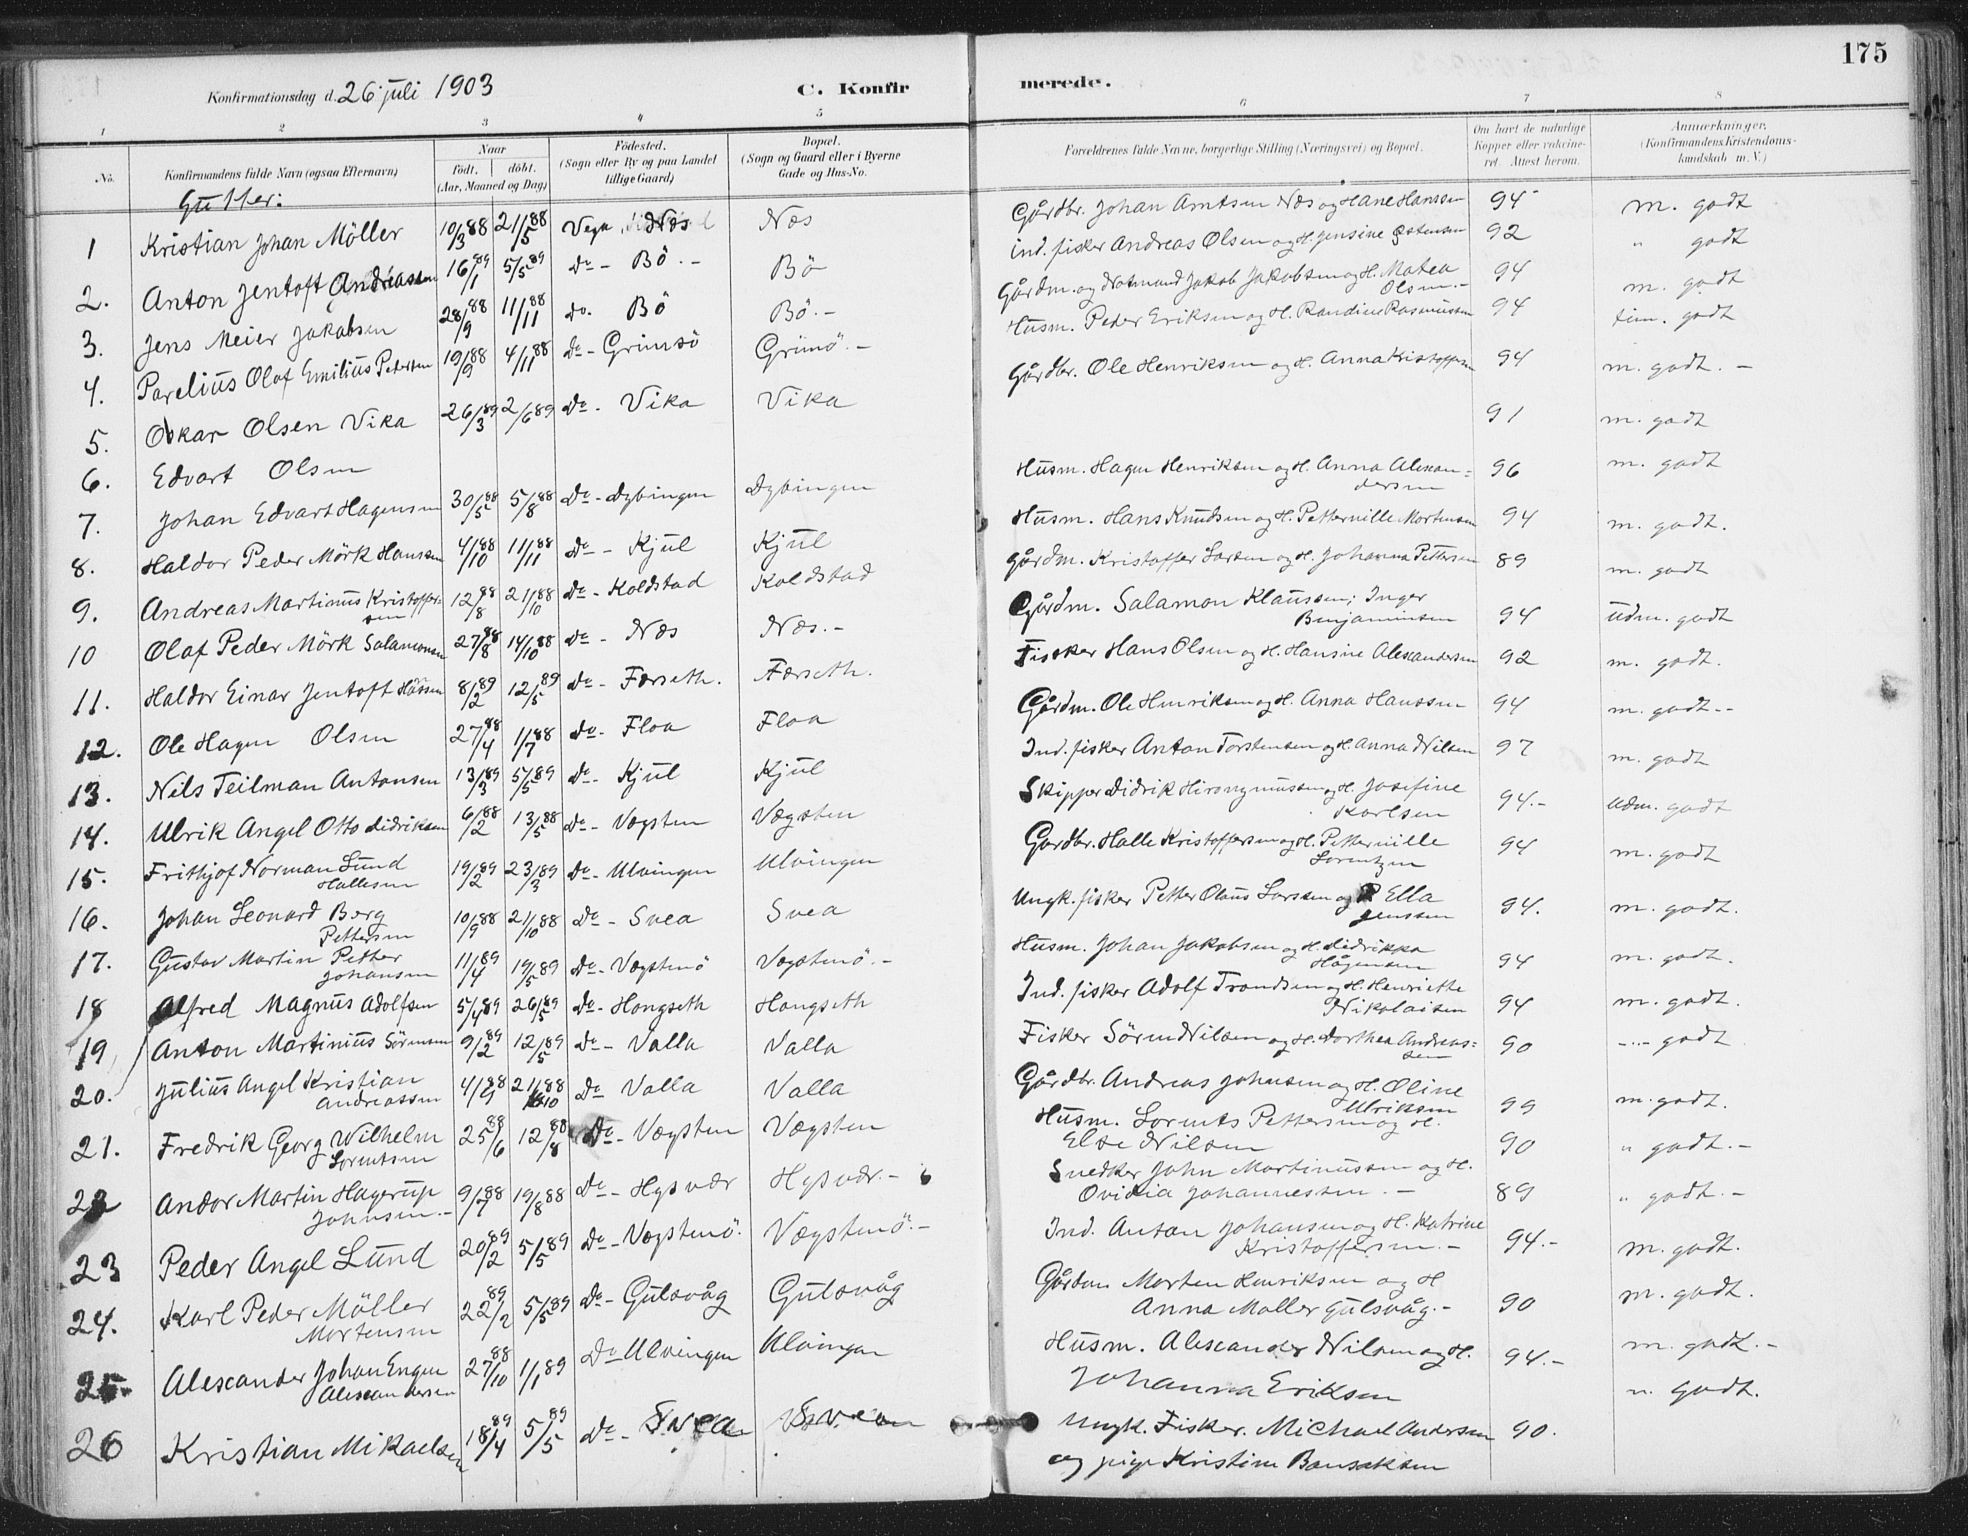 175
Konfirmationsdag d. 26 juli 1903
C. Konfirmerede.
1 2 3 4 5 6 7 8
No.
Konfirmandens fulde Navn (ogsaa Efternavn)
Naar
födt. döbt.
(Aar, Maaned og Dag)
Födested.
(Sogn eller By og paa Landet
tillige Gaard)
Bopæl.
(Sogn og Gaard eller i Byerne
Gade og Hus-No.
Forældrenes fulde Navne, borgerlige Stilling (Næringsvei) og Bopæl.
Om havt de naturlige
Kopper eller vaccine-
ret. Attest herom.
Anmærkninger.
(Konfirmandens Kristendoms-
kundskab m. V.)
Gutter:
1 Kristian Johan Möller 10/3 88 21/5 88 Vega Næs Næs Gårdbr. Johan Arntsen Næs og Hane Hanssen 94 m. godt
2. Anton Jentoft Andreassen 16/1 89 5/5 89 Do - Bö. - Bö ind. fisker Andreas Olsen og H. Jensine Östensen 92 " godt
3. Jens Meier Jakobsen 28/9 88 11/11 88 do. Bö Bö. - Gårdm. og Notmand Jakob Jakobsen og H. Matea
Olsen. - 94 m. godt
4. Parelius Olaf Emilius Petersen 19/9 88 4/11 88 Do - Grimsö Grimö. - Husm. Peder Eriksen og H. Randine Rasmussen 94 tem. godt
5. Oskar Olsen Vika 26/3 89 2/6 89 Do. Vika Vika Gårdbr. Ole Henriksen og H. Anna Kristoffersen 94 m. godt. -
6. Edvart Olsen 91 m. godt
7. Johan Edvart Hagensen 30/5 88 5/8 88 Do - Dybingen Dybingen Husm. Hagen Henriksen og H. Anna Alexan-
dersen 96 m. godt
8. Haldor Peder Mörk Hanssen 4/10 88 11/11 88 Do - Kjul Kjul Husm. Hans Knudsen og H. Petternille Mortensen 94 m. godt.
9. Andreas Martinus Kristoffer-
sen 12/8 88 21/10 88 Do - Koldstad Koldstad Gårdm. Kristoffer Larsen og H. Johanna Pettersen 89 m. godt
10 Olaf Peder Mörk Salamonsen 27/8 88 14/10 88 Do - Næs Næs. - Gårdm. Salamon Klaussen; Inger
Benjaminsen 94 Udm. godt
11. Haldor Einar Jentoft Hanssen 8/2 89 12/5 89 Do - Færseth. Færseth. Fisker Hans Olsen og H. Hansine Alexandersen 92 m. godt.
12. Ole Hagen Olsen 27/4 88 1/7 88 Do - Floa Floa Gårdm. Ole Henriksen og H. Anna Hanssen 94 m. godt. -
13. Nils Teilman Antonsen 13/3 89 5/5 89 Do - Kjul Kjul Ind. fisker Anton Torstensen og H. Anna Nilsen 97 m. godt
14. Ulrik Angel Otto Didriksen 6/2 88 13/5 88 Do - Vægsten Vægsten Skipper Didrik Hironymussen og H. Josefine
Karlsen 94. - Udm. godt
15. Frithjof Norman Lund
Hallesen 19/2 89 23/3 89 Do - Ulvingen Ulvingen Gardbr. Halle Kristoffersen og H. Petternille
Lorentzen 94 m. godt
16. Johan Leonard Berg
Pettersen 10/9 88 21/10 88 Do - Svea Svea Ungk. fisker Petter Olaus Larssen og P Ella
Jenssen 94. m. godt.
17. Gustav Martin Petter
Johansen 11/4 89 19/5 89 Do - Vægstenö Vægstenö. - Husm. Johan Jakobsen og H. Didrikka
Hågensen 94 m. godt.
18 Alfred Magnus Adolfsen 5/4 89 26/5 89 Do - Hongseth Hongseth Ind. fisker Adolf Trondsen og H. Henriette
Nikolaisen 94 m. godt.
19. Anton Martinius Sörensen 9/2 89 12/5 89 Do - Valla Valla Fisker Sören Nilsen og H. Dorthea Andreas-
sen 90 - " - godt
20. Julius Angel Kristian
Andreassen 4/9 88 21/10 88 Do Valla Valla Gårdbr. Andreas Johnsen og H. Oline
Ulriksen 99 m. godt.
21. Fredrik Georg Wilhelm
Lorentsen 25/6 88 12/8 88 Do - Vægsten Vægsten Husm. Lorents Pettersen og H.
Else Nilsen 90 " godt. -
22 Andor Martin Hagerup
Johnsen. - 9/7 88 19/8 88 Do - Hysvær Hysvær. - Snedker John Martinussen og H.
Ovidia Johannessen. - 89 " godt. -
23 Peder Angel Lund 20/2 89 5/5 89 Do - Vægstenö. Vægstenö. - Ind. Anton Johansen og H. Katrine
Kristoffersen. - 94. - m. godt.
24. Karl Peder Möller
Mortensen 22/2 89 5/5 89 Do - Gulsvåg Gulsvåg Gårdm Morten Henriksen og H
Anna Moller Gulsvåg. - 90 m. godt.
25. Alexander Johan Engen
Alexandersen 27/10 88 1/1 89 Do Ulvingen Ulvingen Husm. Alexander Nilsen og H.
Johanna Eriksen 94. - m. godt. -
26 Kristian Mikaelsen 18/4 89 5/5 89 Do - Svea Svea Ungk. Fisker. Michael Andersen
og pige Kristine Bensaksen 90. " godt.